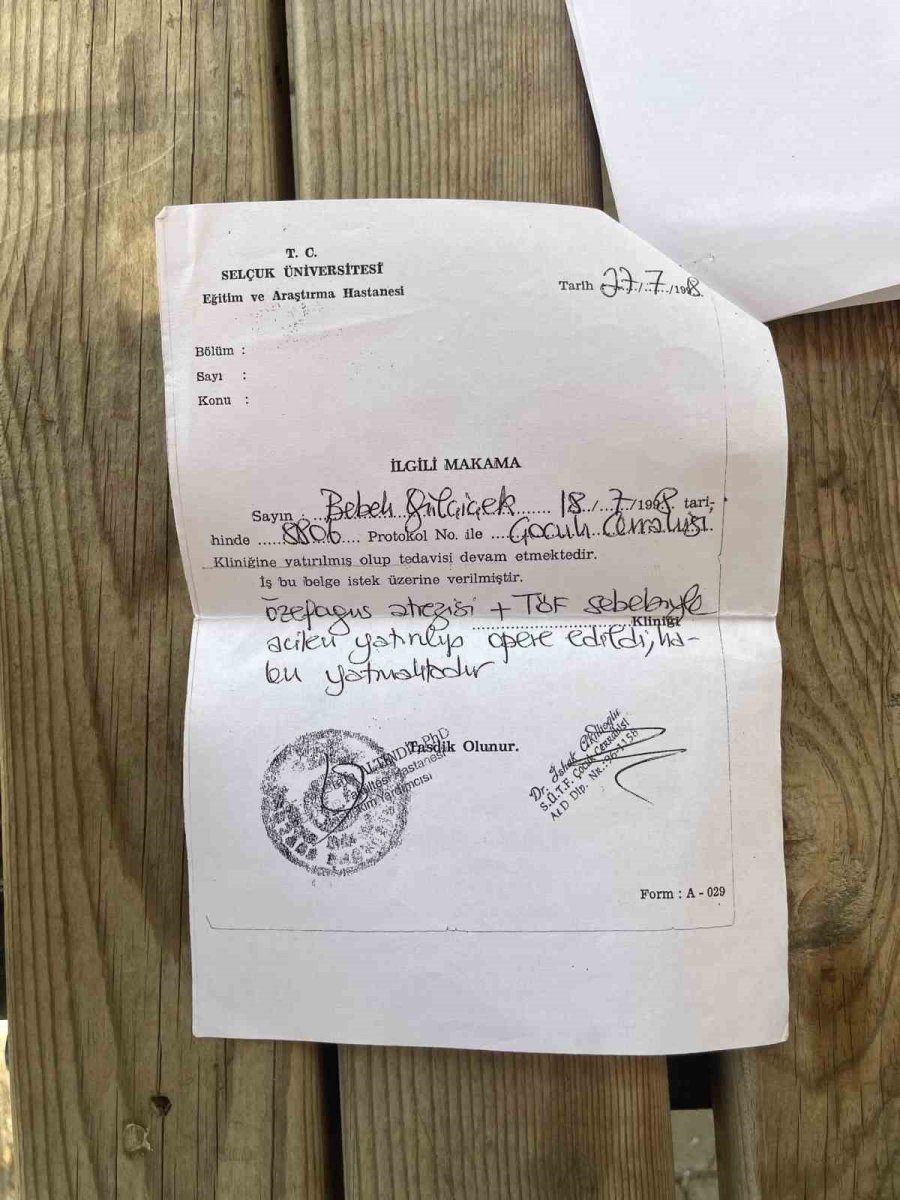 T. C.
SELÇUK ÜNİVERSİTESİ
Eğitim ve Araştırma Hastanesi
Tarih 27/7/1998
Bölüm :
Sayı :
Konu :
İLGİLİ MAKAMA
Sayın : Bebek Gülçiçek 18/7/1998 tari-
hinde 8806 Protokol No. ile Çocuk Cerrahisi
Kliniğine yatırılmış olup tedavisi devam etmektedir.
İş bu belge istek üzerine verilmiştir.
özefagus atrezisi + TÖF sebebiyle
Kliniği
acilen yatırılıp opere edildi, ha-
len yatmaktadır
Tasdik Olunur.
ALTINDİŞ, PhD
Fakültesi Hastanesi
Yardımcısı
Dr. İshak
S.Ü.T.F. Çocuk Cerrahisi
ALD Dip. Nr.: 96-1158
Form : A - 029